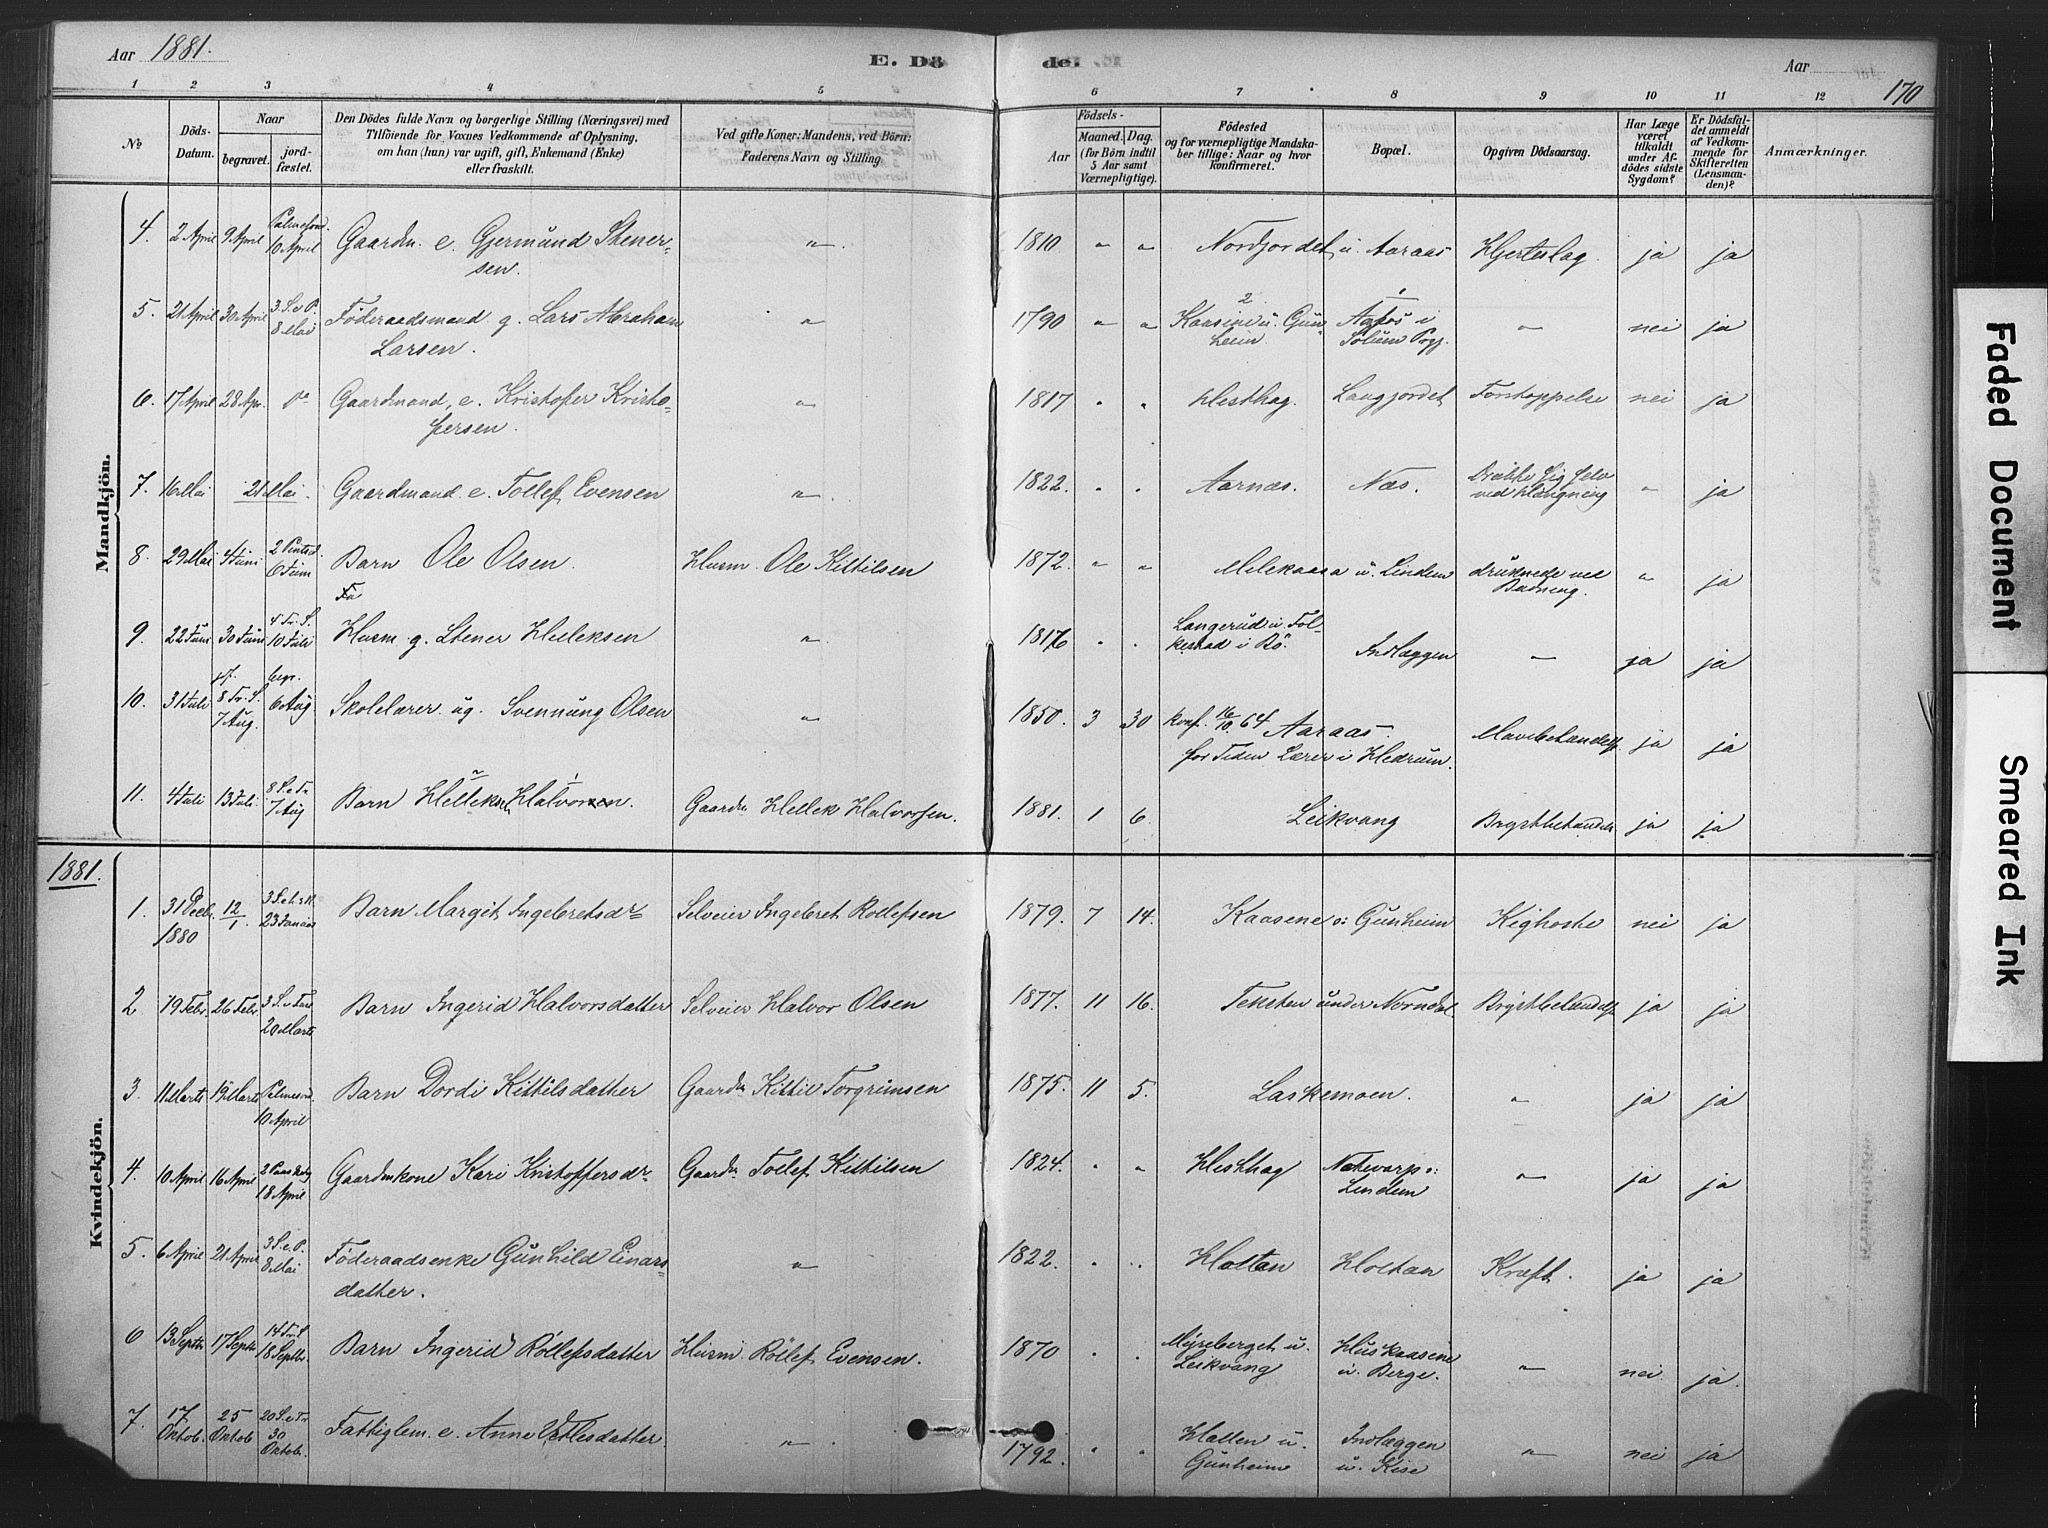 Aar 1881.
E. Dö
de.
Aar
170
1 2 3 4 5 6 7 8 9 10 11 12
№
Döds-
Datum.
Naar
begravet.
jord-
fæstet.
Den Dödes fulde Navn og borgerlige Stilling (Næringsvei) med
Tilföiende for Voxnes Vedkommende af Oplysning,
om han (hun) var ugift, gift, Enkemand (Enke)
eller fraskilt.
Ved gifte Koner: Mandens, ved Börn:
Faderens Navn og Stilling
Födsels-
Aar
Maaned. Dag.
(for Börn indtil
5 Aar samt
Værnepligtige).
Födested
og for værnepligtige Mandska-
ber tillige: Naar og hvor
konfirmeret.
Bopæl.
Opgiven Dödsaarsag.
Har Læge
været
tilkaldt
under Af-
dödes sidste
Sygdom?
Er Dödsfal-
det anmeldt
af Vedkom-
mende for
Skifteretten
(Lensman-
den)?
Anmærkninger.
Mandkjön.
4. 2 April 9 April Palmesönd. 10 April Gaardm. e. Gjermund Stener-
sen. " 1810 " " Nordjordet u. Aaraas Hjerteslag. ja ja
5. 21 April 30 April 3 S. e. P. 8 Mai Föderaadsmand g. Lars Abraham
Larsen. " 1790 " " Kaasine u. Gun-
heim. i Solum Prgj. " nei ja
6. 17 April 28 Apr. do Gaardmand, e. Kristofer Kristo-
fersen. " 1817 " " Hesthag. Langjordet Forstoppelse nei ja
7. 16 Mai 21 Mai. Gaardmand e. Tollef Evensen " 1822. " " Aarnæs. Næs. Dræbte sig selv
ved Hængning " ja
8. 29 Mai 4 Juni 2 Pintsed. 6 Juni Barn Ole Olsen. Husm. Ole Kittilsen 1872. " " Melekaasa u. Lindem druknede ved
Badning. " ja
9. 22 Juni 30 Juni 4 Tr. S. 10 Juli Husm. g. Stener Helleksen " 1816 " " Langerud u. Fol-
kestad i Bö. Indlæggen " ja ja
10. 31 Juli jf. 8 Tr. S. 7 Aug. begr. 6 Aug. Skolelærer ug. Svennung Olsen " 1850. 3 30 konf. 16/10 64 Aaraas.
for Tiden Lærer i Hedrum. Mavebetændelse ja ja
11. 4 Juli 13 Juli 8 S. e. Tr. 7 Aug Barn Helleksen Halvor. Gaardm. Hellek Halvorsen. 1881. 1 6. Leikvang Brystbetændelse ja ja
1881.
Kvindekjön.
1. 31 Decb. 1880 12/1 23 Januar Barn Margit Ingebretsdr Selveier Ingebret Rollefsen 1879. 7 14. Kaasene o: Gunheim Kighoste nei ja
2 19 Febr. 26 Febr. 3 S. e. Fast 20 Marts Barn Ingerid Halvorsdatter Selveier Halvor Olsen 1877. 11 16. Teksten under Norndal. Brystbetændelse ja ja
3. 11 Marts 19 Marts Palmesönd. 10 April Barn Dordi Kittilsdatter Gaardm. Kittil Torgrimsen 1875. 11 5. Laskemoen. " ja ja
4. 10 April 16 April 2 Paaskedag 18 April Gaardmkone Kari Kristoffersdr Gaardm. Tollef Kittilsen 1824. " " Hesthag Natevarp o:
Lindem " ja ja
5. 6 April 21 April 3 S. e. P. 8 Mai Föderaadsenke Gunhild Einars-
datter. " 1822. " " Hottan Hottan Kræft. ja ja
6 13 Septb. 17 Septb. 14 Tr. S. 18 Septbr. Barn Ingerid Rollefsdatter Husm. Rollef Evensen. 1870 " " Myreberget u.
Leikvang Huskaasine
u. Berge. " nei ja.
7. 17 Oktob. 25 Oktob 20 S. e. Tr 30 Oktob. Fattiglem. e. Anne Vetlesdatter. " 1792. " " Hatten u.
Gunheim Indlæggen
u. Kise " nei ja
Faded Document
Smeared Ink